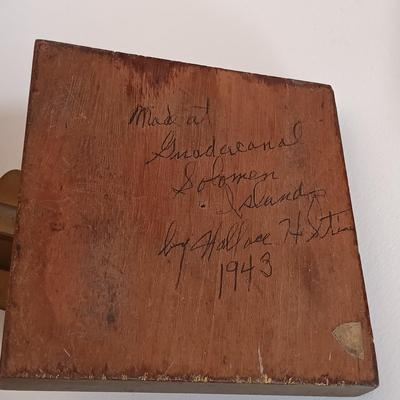 Made at
Guadacanal
Solomen
Islands
by Wallace H
1943